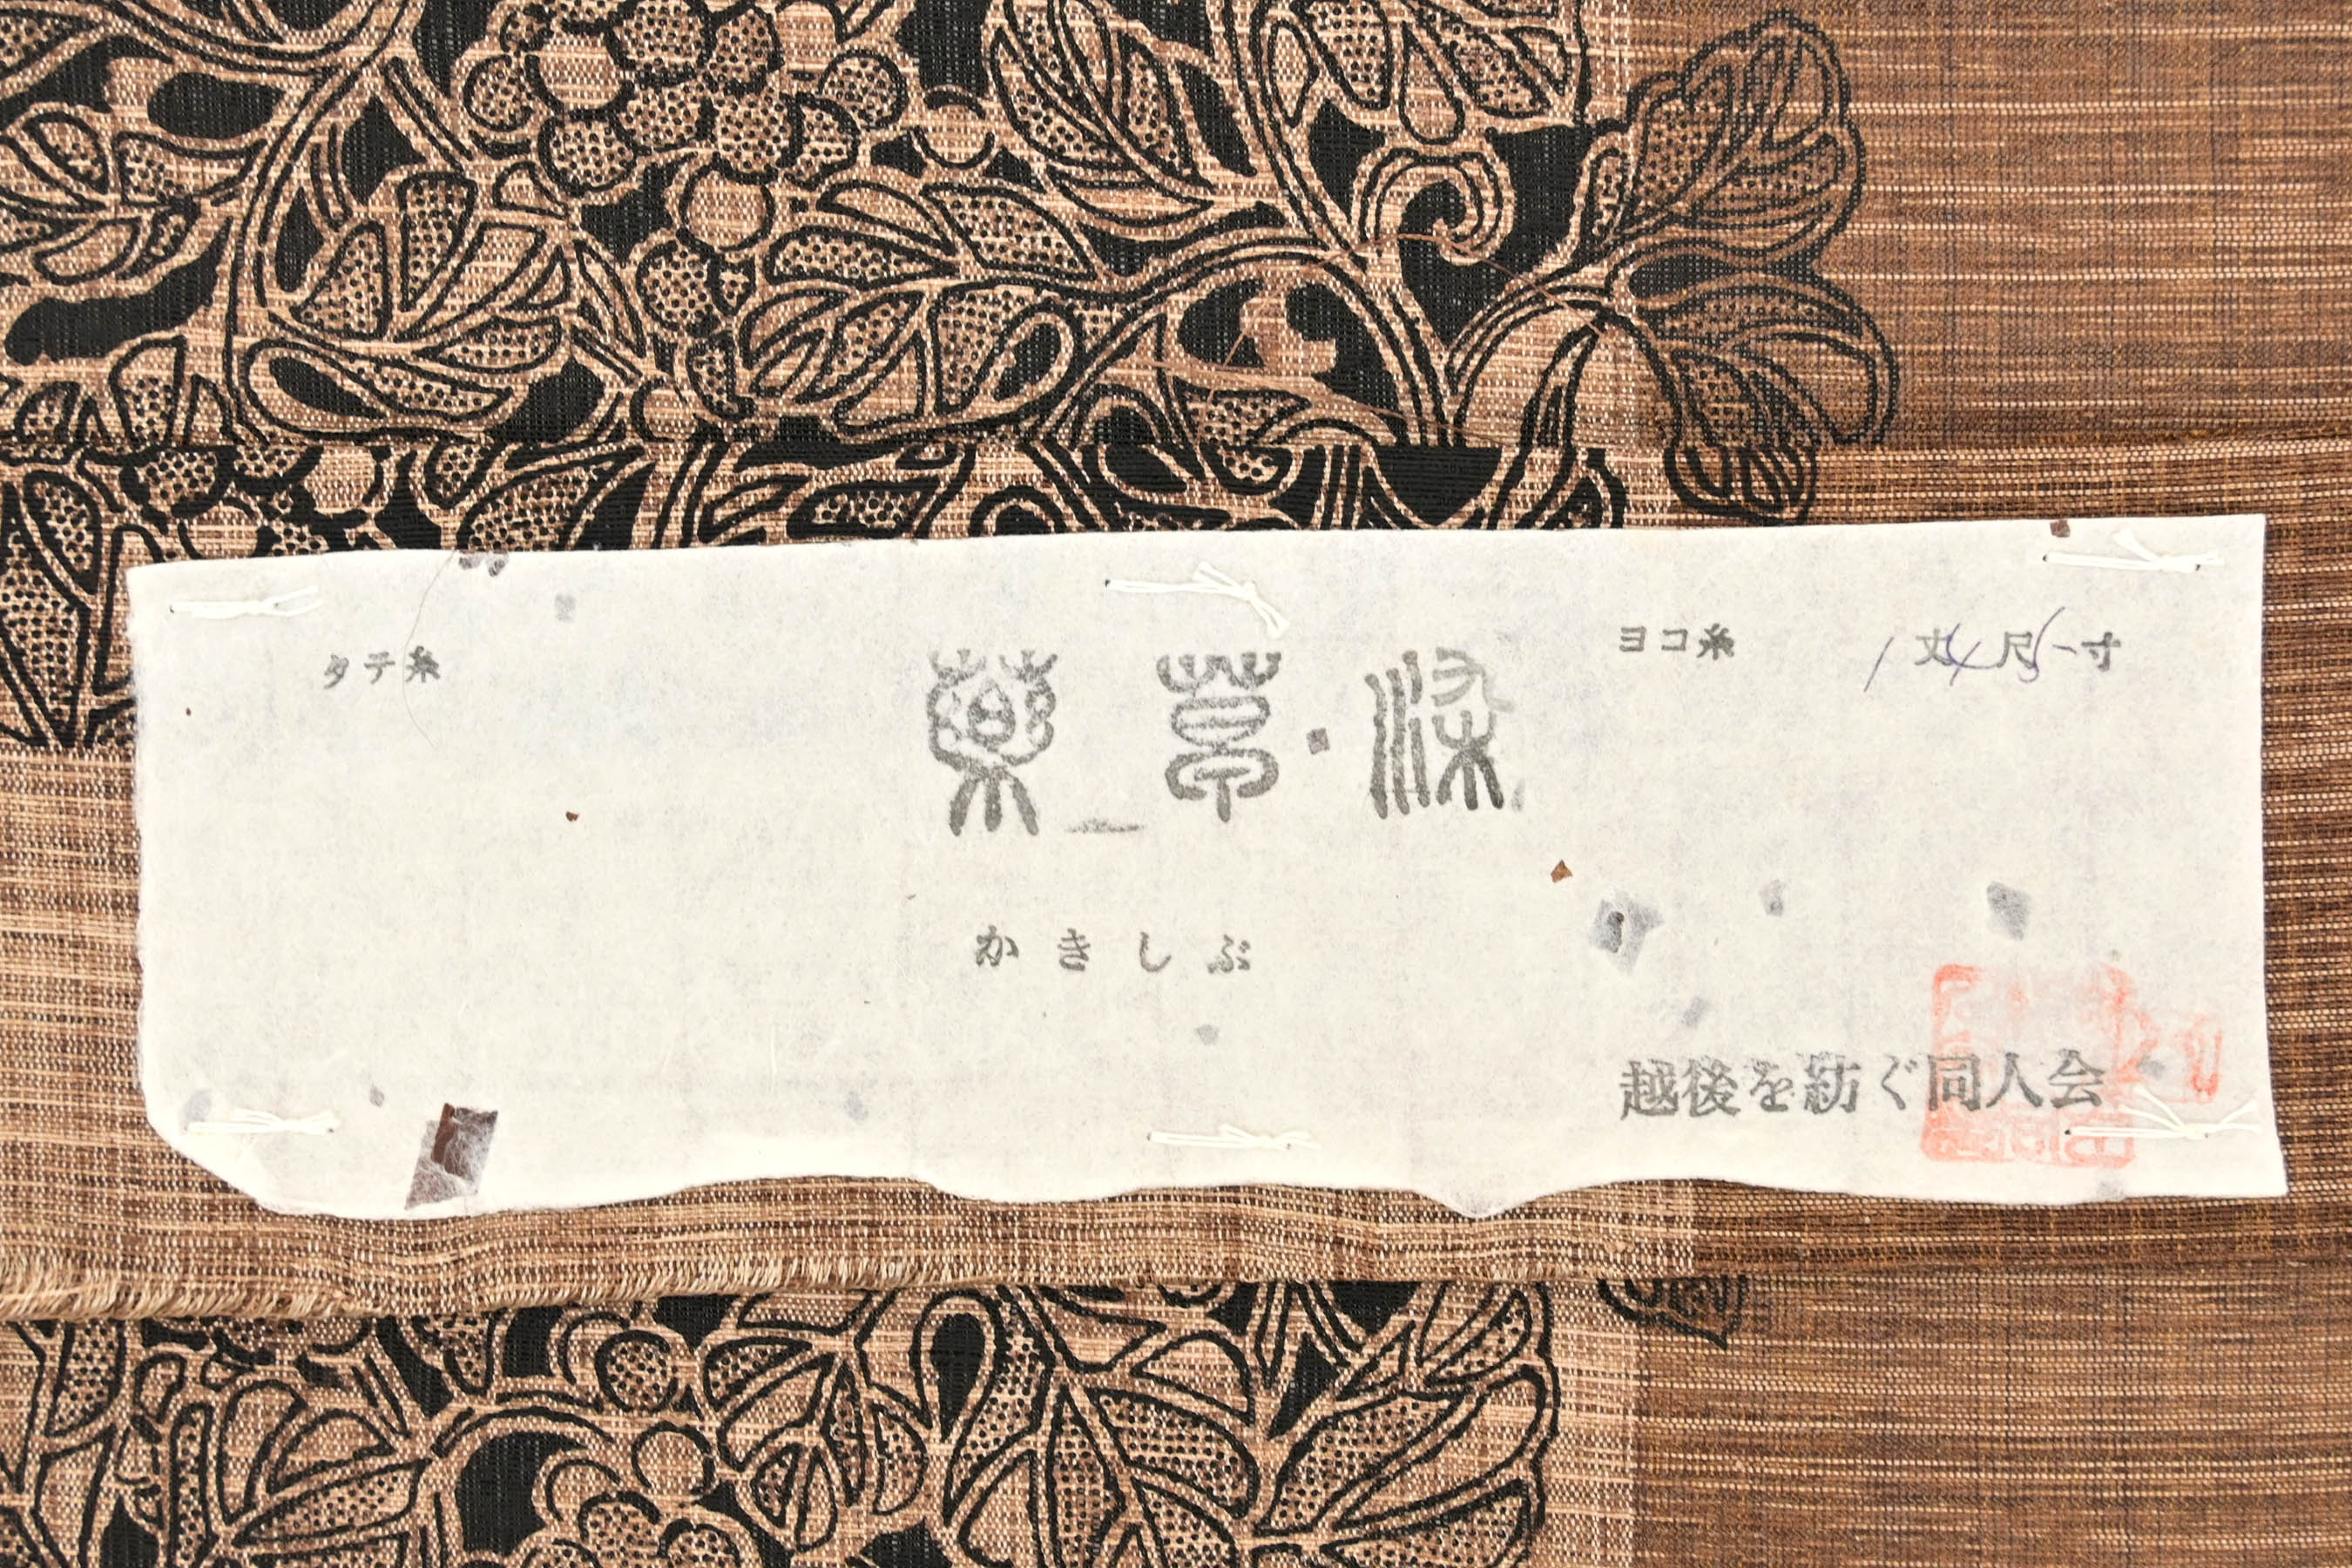 タテ糸
ヨコ糸 1丈4尺5寸
薬草染
かきしぶ
越後を紡ぐ同人会